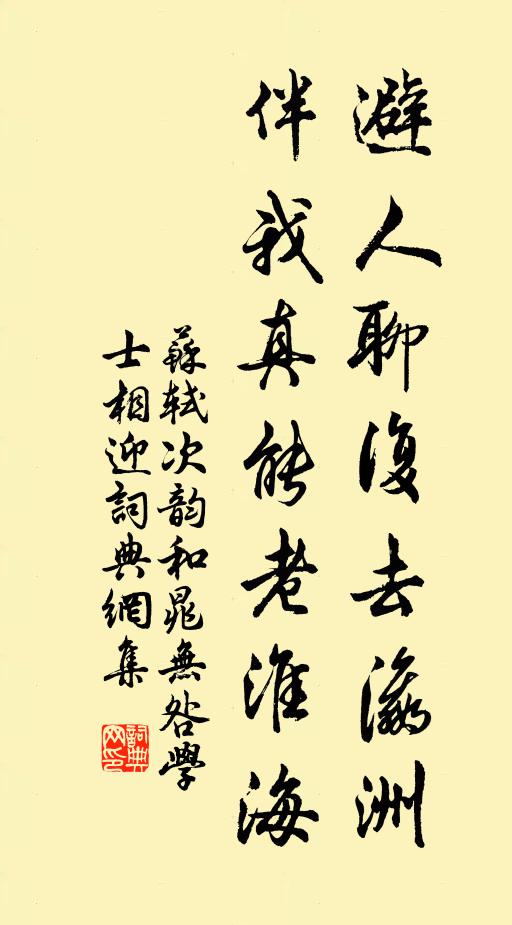 避人聊復去瀛洲
伴我真能老淮海
蘇軾次韵和晁無咎學
士相迎詞典網集
詞典
网印